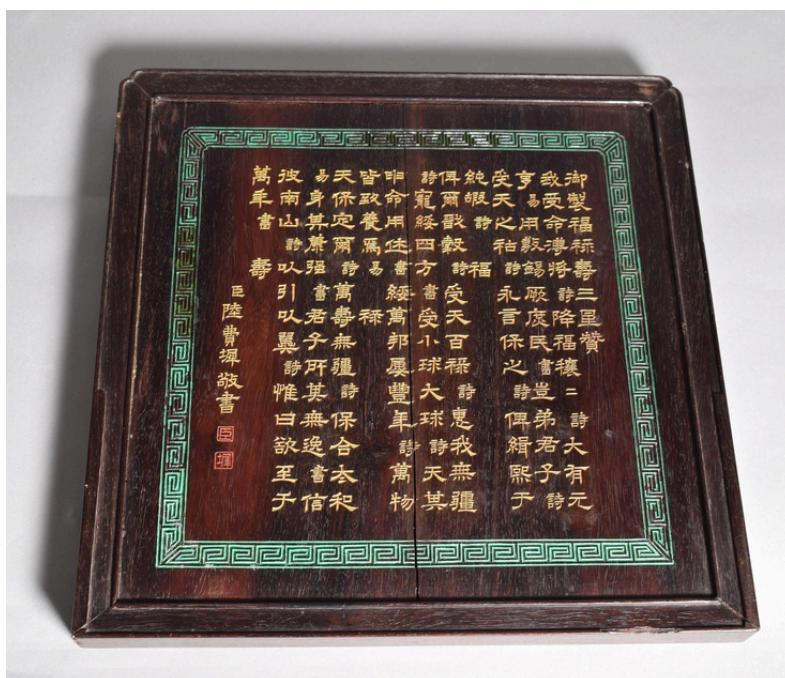 御製福祿壽三星贊
我受命溥將詩降福穰〻詩大有元
亨易用敷錫厥庶民書豈弟君子詩
受天之祜詩永言保之詩俾緝熙于
純嘏詩　福
俾爾戩穀詩受天百祿詩惠我無疆
詩寵綏四方書受小球大球詩天其
申命用休書綏萬邦屢豐年詩萬物
皆致養焉易　祿
天保定爾詩萬壽無疆詩保合太和
易身其康彊書君子所其無逸書信
彼南山詩以引以翼詩惟曰欲至于
萬年書　壽
臣陸費墀敬書
臣
墀